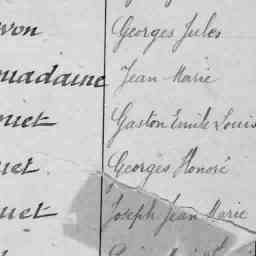 von Georges Jules
uadaine Jean-Marie
uet Gaston Emile Louis
uet Georges Honoré
uet Joseph Jean Marie